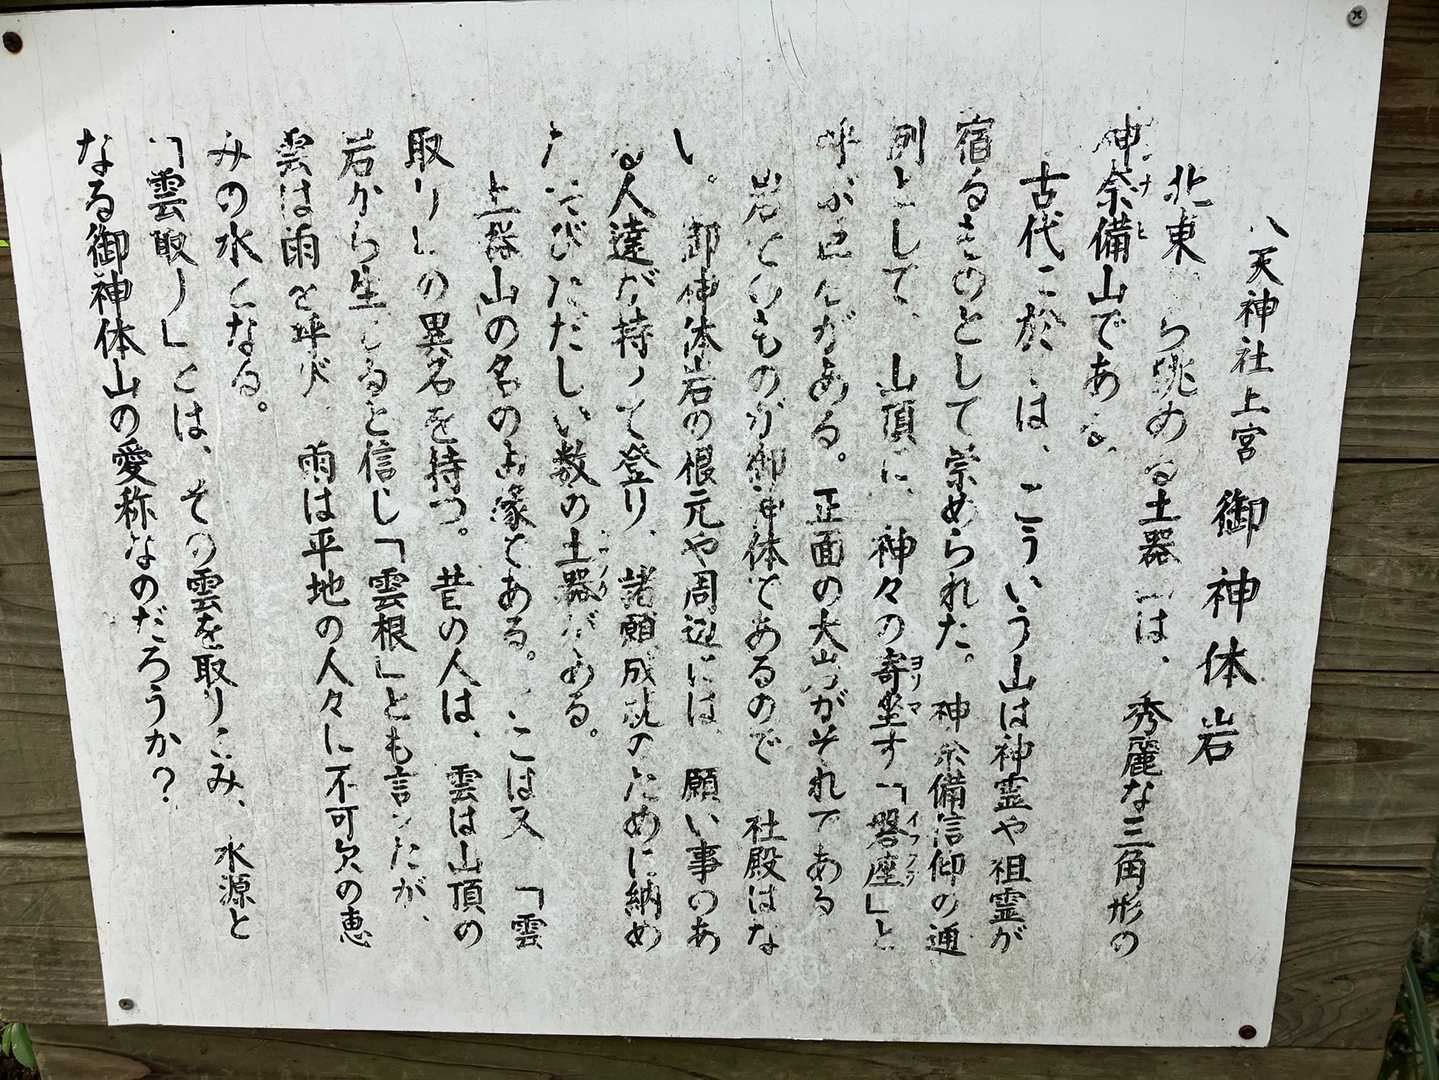 八天神社上宮 御神体岩
北東から眺める土器山は、秀麗な三角形の
神奈備山である。
古代に於ては、こういう山は神霊や祖霊が
宿るものとして崇められた。神奈備信仰の通
例として、山頂に、神々の寄坐す「磐座」と
呼ぶ巨石がある。正面の大岩がそれである
岩そのものが御神体であるので 社殿はな
い。御神体岩の根元や周辺には、願い事のあ
る人達が持って登り、諸願成就のために納め
たおびただしい数の土器がある。
土器山の名の由縁である。ここは又「雲
取り」の異名を持つ。昔の人は、雲は山頂の
岩から生じると信じ「雲根」とも言ったが、
雲は雨を呼び 雨は平地の人々に不可欠の恵
みの水となる。
「雲取り」とは、その雲を取りこみ、水源と
なる御神体山の愛称なのだろうか？